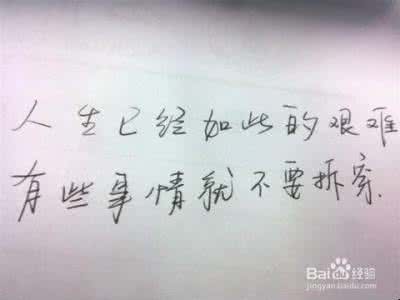 人生已经如此的艰难
有些事情就不要拆穿.
Baidu经验
jingyan.baidu.com